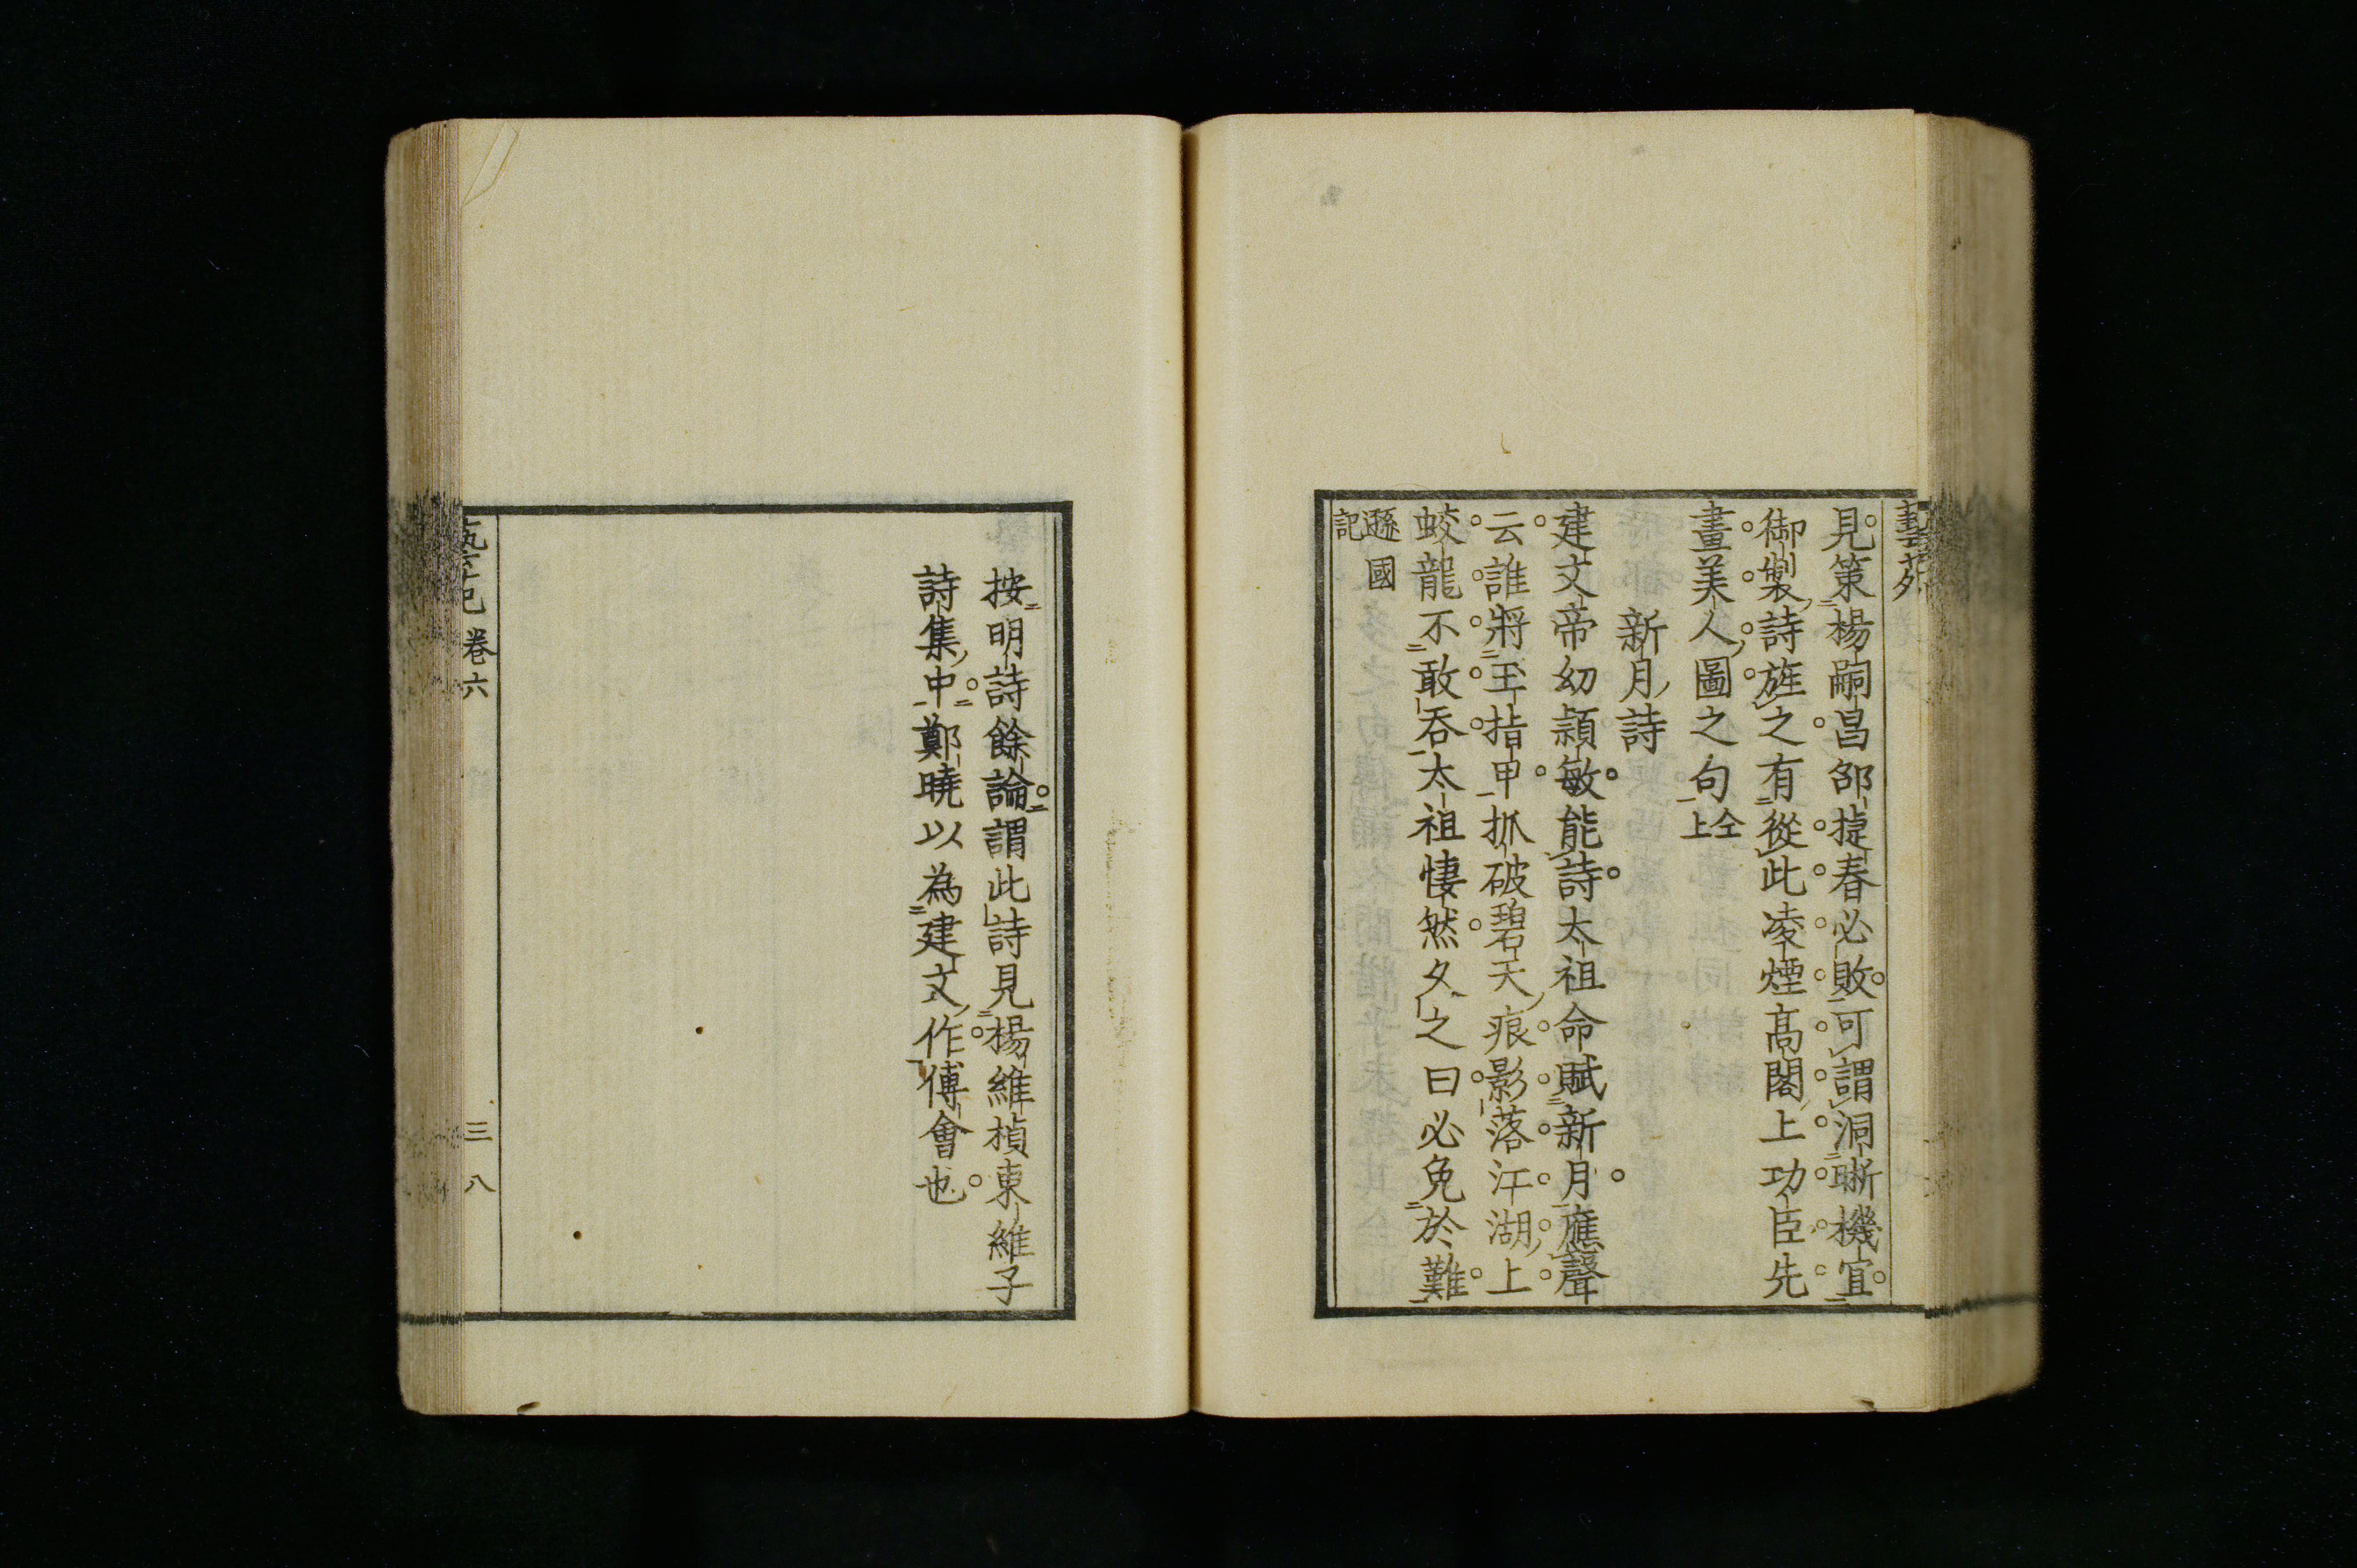 藝苑
見策楊嗣昌邵捷春必敗可謂洞晣機宜
御製詩旌之有從此凌煙高閣上功臣先
畫美人圖之句仝上
新月詩
建文帝幼頴敏能詩太祖命賦新月應聲
云誰將玉指甲抓破碧天痕影落江湖上
蛟龍不敢吞太祖悽然久之曰必免於難
遜國記
按明詩餘論謂此詩見楊維楨東維子
詩集中鄭曉以為建文作傅會也
卷六
三八